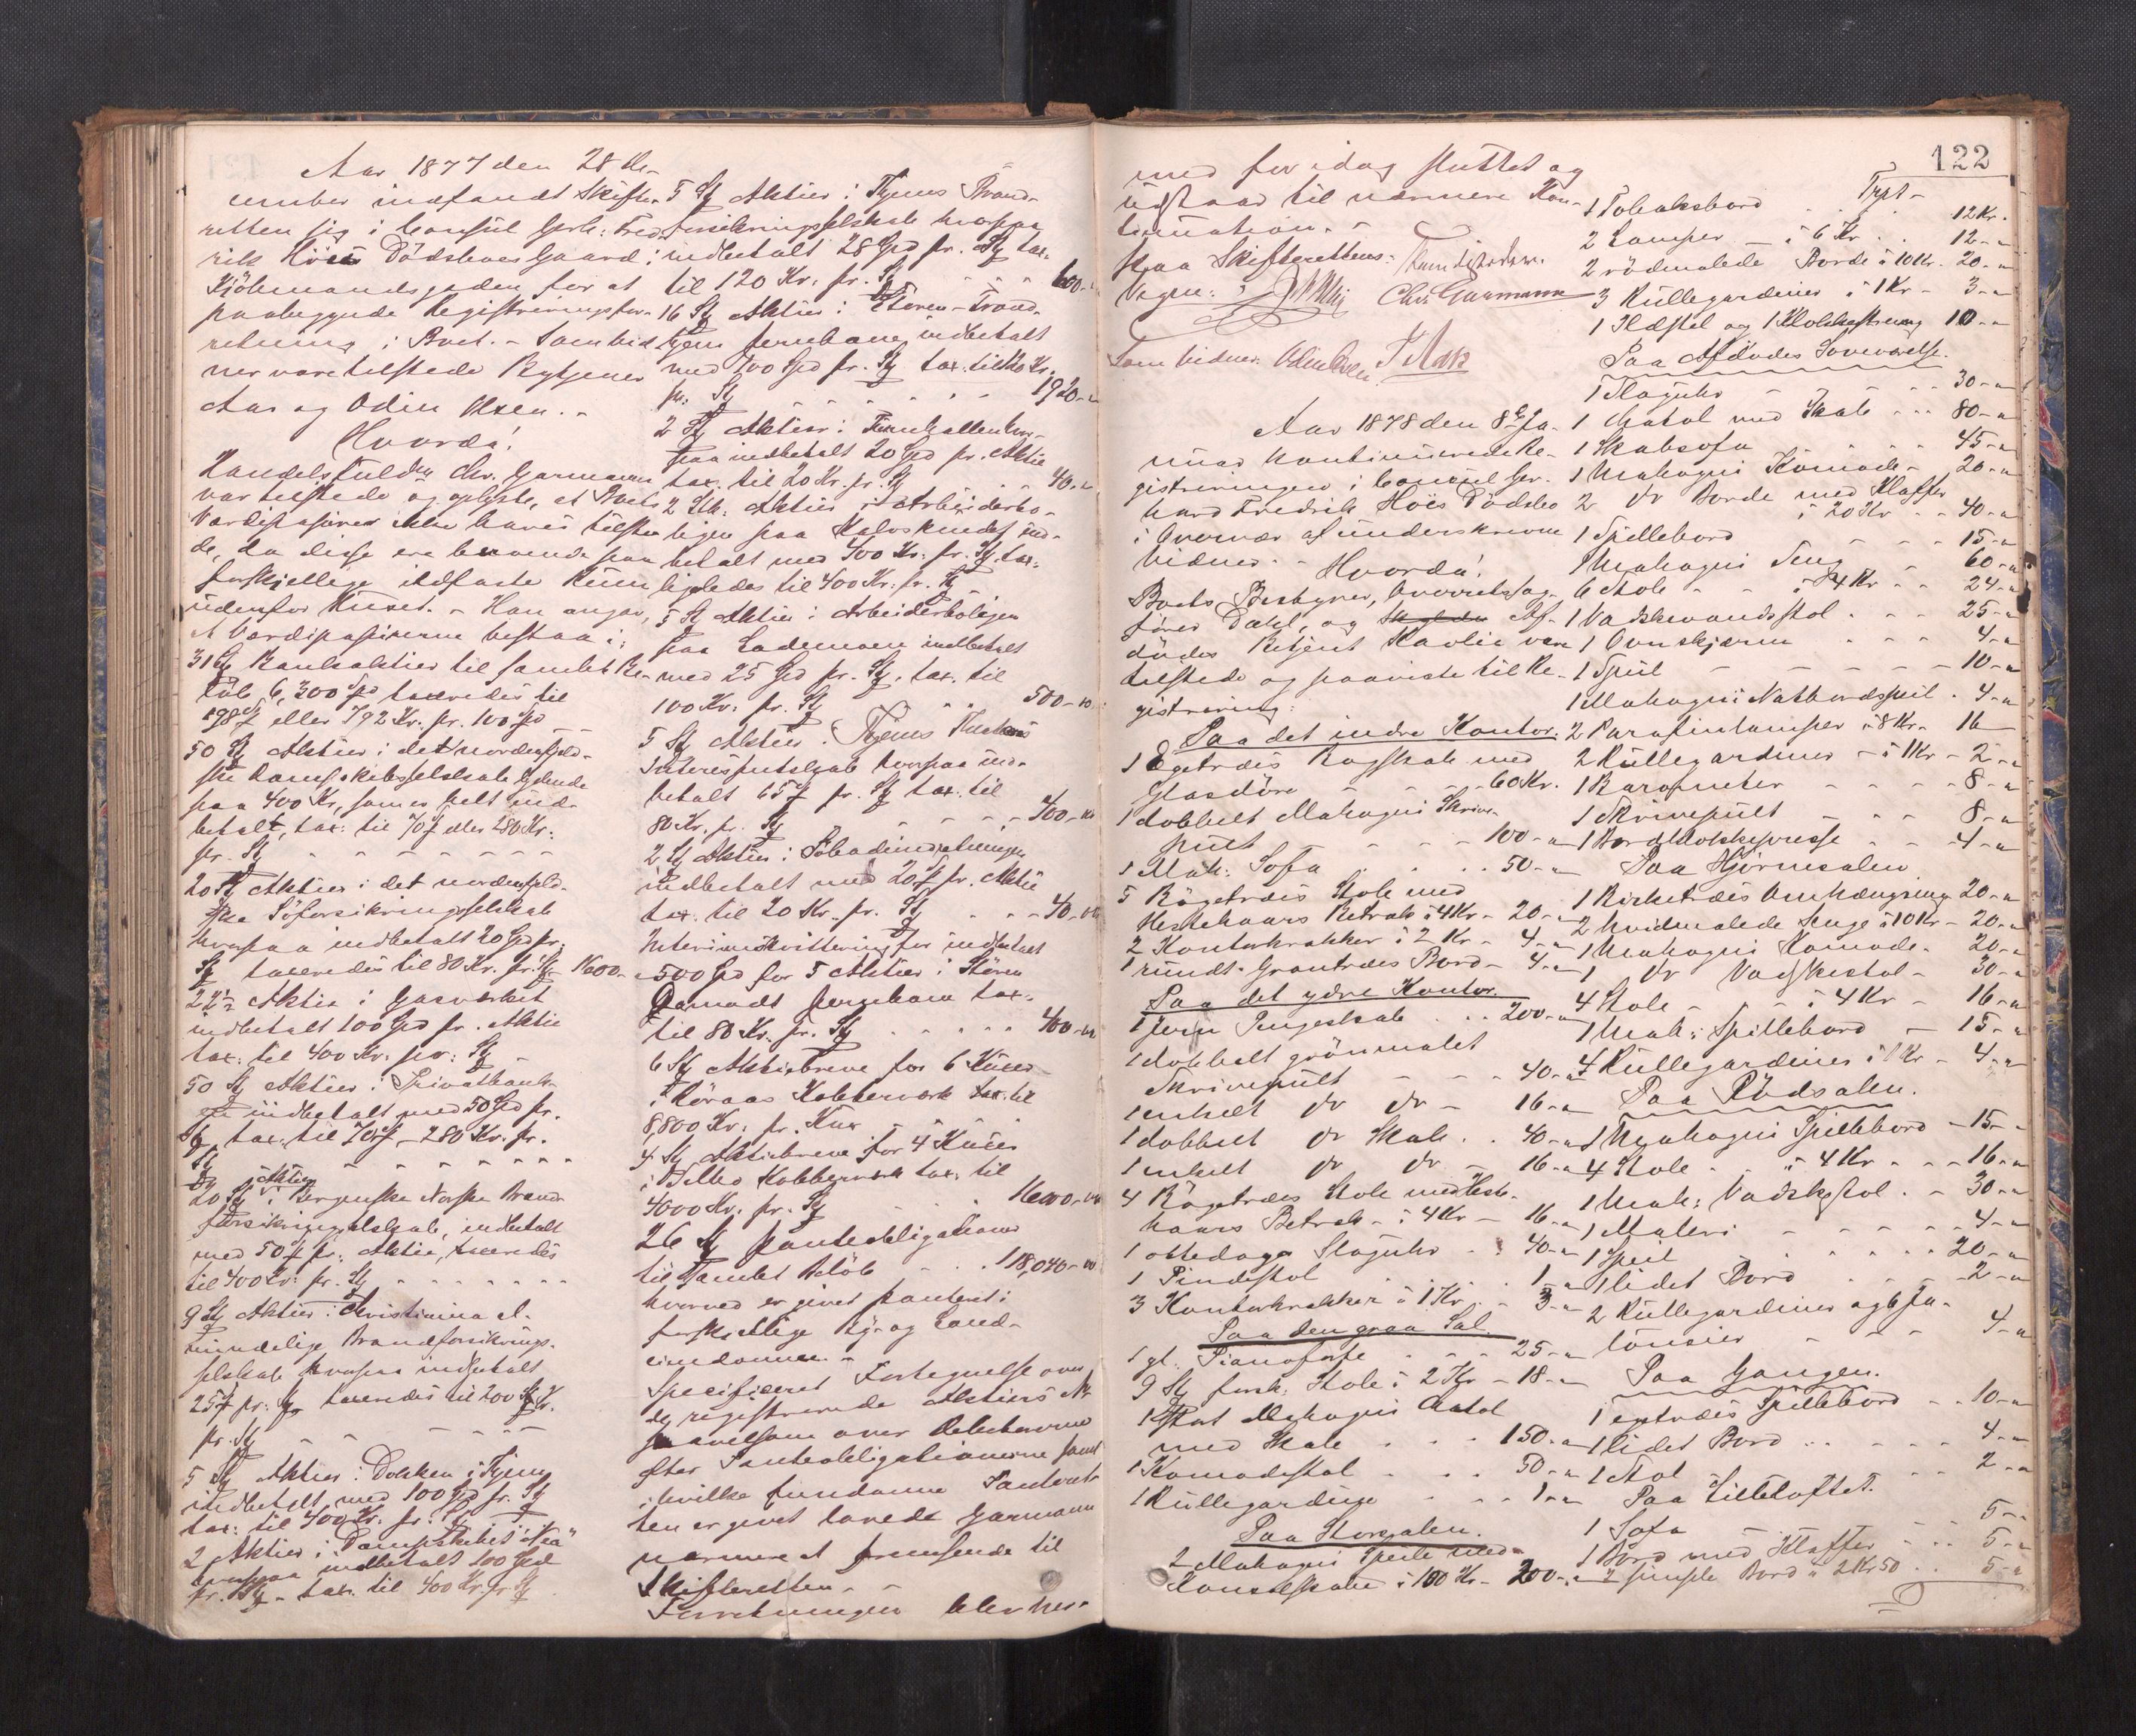 Aar 1877 den 28 De-
cember indfandt Skifte-
retten sig i Consul Gerh: Fred-
rik Höes Dödsboes Gaard i
Kjöbmandsgaden for at
paabegynde Registreringsfor-
retning i Boet. - Som Vid-
ner vare tilstede Bytjener
Aas og Odin Olsen. -
Hvorda!
Handelsfuldm Chr. Garmann
var tilstede og oplyste, at Boets
Værdipapirer ikke haves tilste-
de, da disse ere beroende paa
forskjellige ildfaste Rum
udenfor Huset. - Han angav,
at Værdipapirerne bestaa i:
31 St Bankaktier til samlet Be-
löb 6,300 Spd taxeredes til
198 Spd eller 792 Kr. pr. 100 Spd
50 St Aktier i det nordenfjeld-
ske Dampskibsselskab lydende
paa 400 Kr, som er helt ind-
betalt, tax: til 70 Spd eller 280 Kr:
pr. St
20 St Aktier i det nordenfjeld-
ske Söforsikringsselskab
hvorpaa indbetalt 20 Spd pr.
St taxeredes til 80 Kr. pr. St 1600 -
22½ Aktie i Gasværket
indbetalt 100 Spd pr. Aktie
tax: til 400 Kr. pr: St
50 St Aktier i Privatbank-
en indbetalt med 50 Spd pr.
St, tax. til 70 Spd - 280 Kr. pr.
St
20 St Aktier i Bergenske Norske Brand
forsikringsselskab, indbetalt
med 50 Spd pr. Aktie, taxeredes
til 400 Kr: pr. St
9 St Aktier i Christiania al-
mindelige Brandforsikrings-
selskab hvorpaa indbetalt
25 Spd pr: St taxeredes til 200 Kr.
pr. St
5 St Aktier i Dokken i Thjem
indbetalt med 100 Spd pr. St
tax: til 400 Kr. pr. St
2 Aktier i Dampskibet "Nea"
hvorpaa indbetalt 100 Spd
pr. St - tax. til 400 Kr. pr St
5 St Aktier i Thjems Brand-
forsikringsselskab hvorpaa
indbetalt 28 Spd pr. St tax.
til 120 Kr. pr. St 600 -
16 St Aktier i Stören - Trond-
hjems Jernbane indbetalt
med 100 Spd pr. St tax. til 120 Kr.
pr: St 1920 -
2 St Aktier i
paa indbetalt 20 Spd pr. Aktie
tax. til 20 Kr. pr. St 40 -
2 Stk: Aktier i Arbeiderbo-
ligen paa Kalvskindet ind-
betalt med 400 Kr: pr. St, tax.
ligeledes til 400 Kr: pr. St
5 St Aktier i Arbeiderboligen
paa Lademoen indbetalt
med 25 Spd pr. St, tax. til
100 Kr: pr. St 500 -
5 St Aktier i Thjems
Interesseselskab hvorpaa ind-
betalt 65 Spd pr. St tax. til
80 Kr. pr. St 400 -
2 St Aktier i Söbadeindretningen
indbetalt med 20 Spd pr. Aktie
tax. til 20 Kr. pr. St 40 -
Interimskvittering for indbetalt
500 Spd for 5 Aktier i Stören
Aamodt Jernbane tax.
til 80 Kr. pr. St 400 -
6 St Aktiebreve for 6 Kuxer
i Röraas Kobberværk tax. til
8,800 Kr: pr. Kux
4 St Aktiebreve for 4 Kuxer
i Selbo Kobberværk tax: til
4000 Kr. pr. St 16000 -
26 St Panteobligationer
til samlet Belöb 118,040 -
hvorved er givet Panteret i
forskjellige By- og Land-
eiendomme -
Specificeret Fortegnelse over
de registrerede Aktiers No
saavelsom over Debitorerne
efter Panteobligationerne samt
i hvilke Eiendomme Panteret-
ten er givet lovede Garmann
nærmere at fremsende til
Skifteretten. -
Forretningen blev her-
122
med for idag sluttet og
udsat til nærmere Kon-
tinuation. -
paa Skifterettens:
Vegne: Chr. Garmann
Som Vidner: Odin Olsen T Aas
Aar 1878 den 8de Ja-
nuar kontinueredes Re-
gistreringen i Consul Ger-
hard Fredrik Höes Dödsbo
i Overvær af underskrevne
Vidner. - Hvorda!
Boets Bestyrer, Overretssag-
förer Dahl, og Af-
dödes Betjent Havlie vare
tilstede og paaviste til Re-
gistrering:
Paa det indre Kontor.
1 Egetræes Bogskab med
Glasdöre - 60 Kr.
1 dobbelt Mahogni Skrive-
pult - 100 -
1 Mah: Sofa 50 -
5 Bögetræes Stole med
Hestehaars Betræk à 4 Kr - 20 -
2 Kontorkrakker à 2 Kr - 4 -
1 rundt Grantræes Bord - 4 -
Paa det ydre Kontor.
1 Jern Pengeskab 200 -
1 dobbelt grönmalet
Skrivepult - 40 -
1 enkelt do do - 16 -
1 dobbelt do Skab 40 -
1 enkelt do do - 16 -
4 Bögetræes Stole med Heste-
haars Betræk - à 4 Kr - 16 -
1 ottedages Slaguhr 40 -
1 Pindestol 1 -
3 Kontorkrakker à 1 Kr 3 -
Paa den graa Sal.
1 gl. Pianoforte 25 -
9 St forsk. Stole à 2 Kr - 18 -
1 stort Mahogni Chatol
med Skab 150 -
1 Komodestol 50 -
1 Rullegardine 1 -
Paa Storsalen.
2 Mahogni Speile med
Konsolskabe à 100 Kr - 200 -
Trpt -
1 Tobaksbord 12 Kr.
2 Lamper - à 6 Kr 12 -
2 rödmalede Borde à 10 Kr. 20 -
3 Rullegardiner à 1 Kr - 3 -
1 Ildstel og 1 Klokkestreng 10 -
Paa Afdödes Soveværelse.
1 Slaguhr 30 -
1 Chatol med Skab 80 -
1 Skabsofa 45 -
1 Mahogni Komode 20 -
2 do Borde med Klaffer
à 20 Kr 40 -
1 Spillebord 15 -
1 Mahogni Seng 60 -
6 Stole - à 4 Kr 24 -
1 Vadskevandsstol 25 -
1 Ovnskjærm 4 -
1 Speil 10 -
1 Mahogni Natbordspeil 4 -
2 Parafinlamper à 8 Kr. 16
2 Rullegardiner - à 1 Kr - 2 -
1 Barometer 8 -
1 Skrivepult 8 -
1 4 -
Paa Hjörnesalen
1 Birketræes Omhængsseng 20 -
2 hvidmalede Senge à 10 Kr - 20 -
1 Mahogni Komode 20 -
1 do Vadskestol - 30 -
4 Stole - à 4 Kr - 16 -
1 Mah: Spillebord - 15 -
4 Rullegardiner à 1 Kr - 4 -
Paa Rödsalen.
1 Mahogni Spillebord - 15 -
4 Stole - à 4 Kr 16 -
1 Mah: Vadskestol 30 -
1 Maleri 4 -
1 Speil 20 -
1 lidet Bord 2 -
2 Rullegardiner og 6 Ja-
lousier 4 -
Paa Gangen.
1 egetræes Spillebord 10 -
1 lidet Bord 4 -
1 Stol 2 -
Paa Lilleloftet.
1 Sofa 5 -
1 Bord med Klaffer 5 -
2 simple Bord à 2 Kr 50 5 -